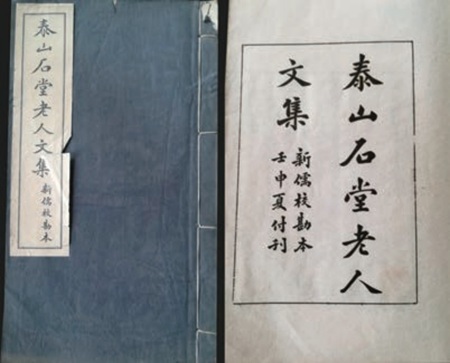 泰山石堂老人文集
新儒校勘本
泰山石堂老人
文集
新儒校勘本
壬申夏付刊